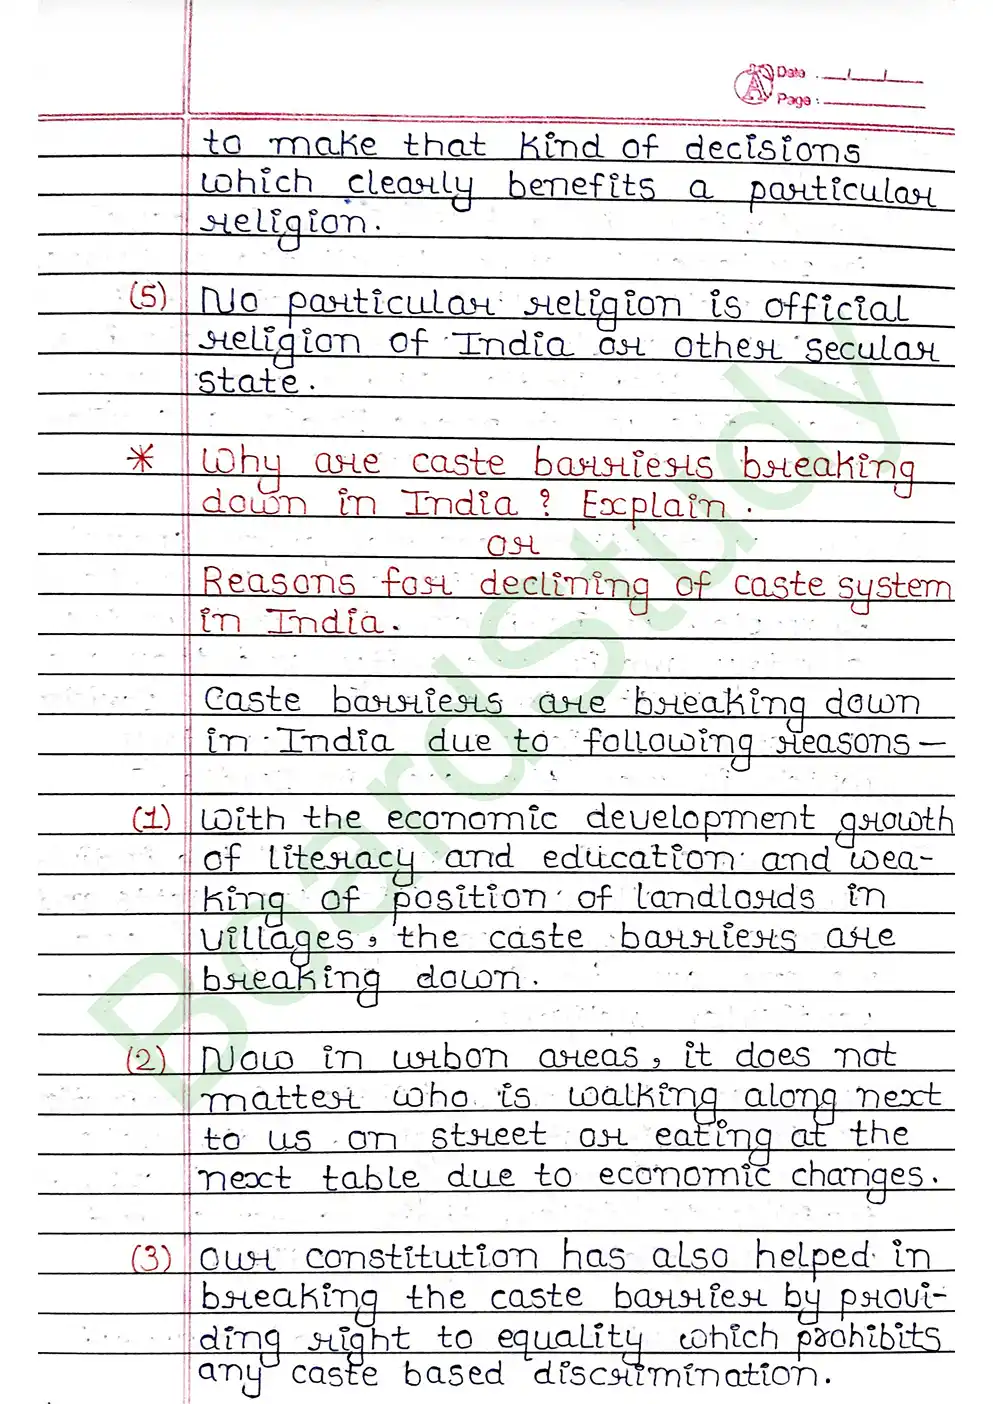 Date : __/__/__
Page :
to make that kind of decisions
which clearly benefits a particular
religion.
(5) No particular religion is official
religion of India or other secular
state.
* Why are caste barriers breaking
down in India ? Explain .
or
Reasons for declining of caste system
in India.
Caste barriers are breaking down
in India due to following reasons –
(1) With the economic development growth
of literacy and education and wea-
king of position of landlords in
villages, the caste barriers are
breaking down.
(2) Now in urbon areas, it does not
matter who is walking along next
to us on street or eating at the
next table due to economic changes.
(3) Our constitution has also helped in
breaking the caste barrier by provi-
ding right to equality which prohibits
any caste based discrimination.
BoardStudy